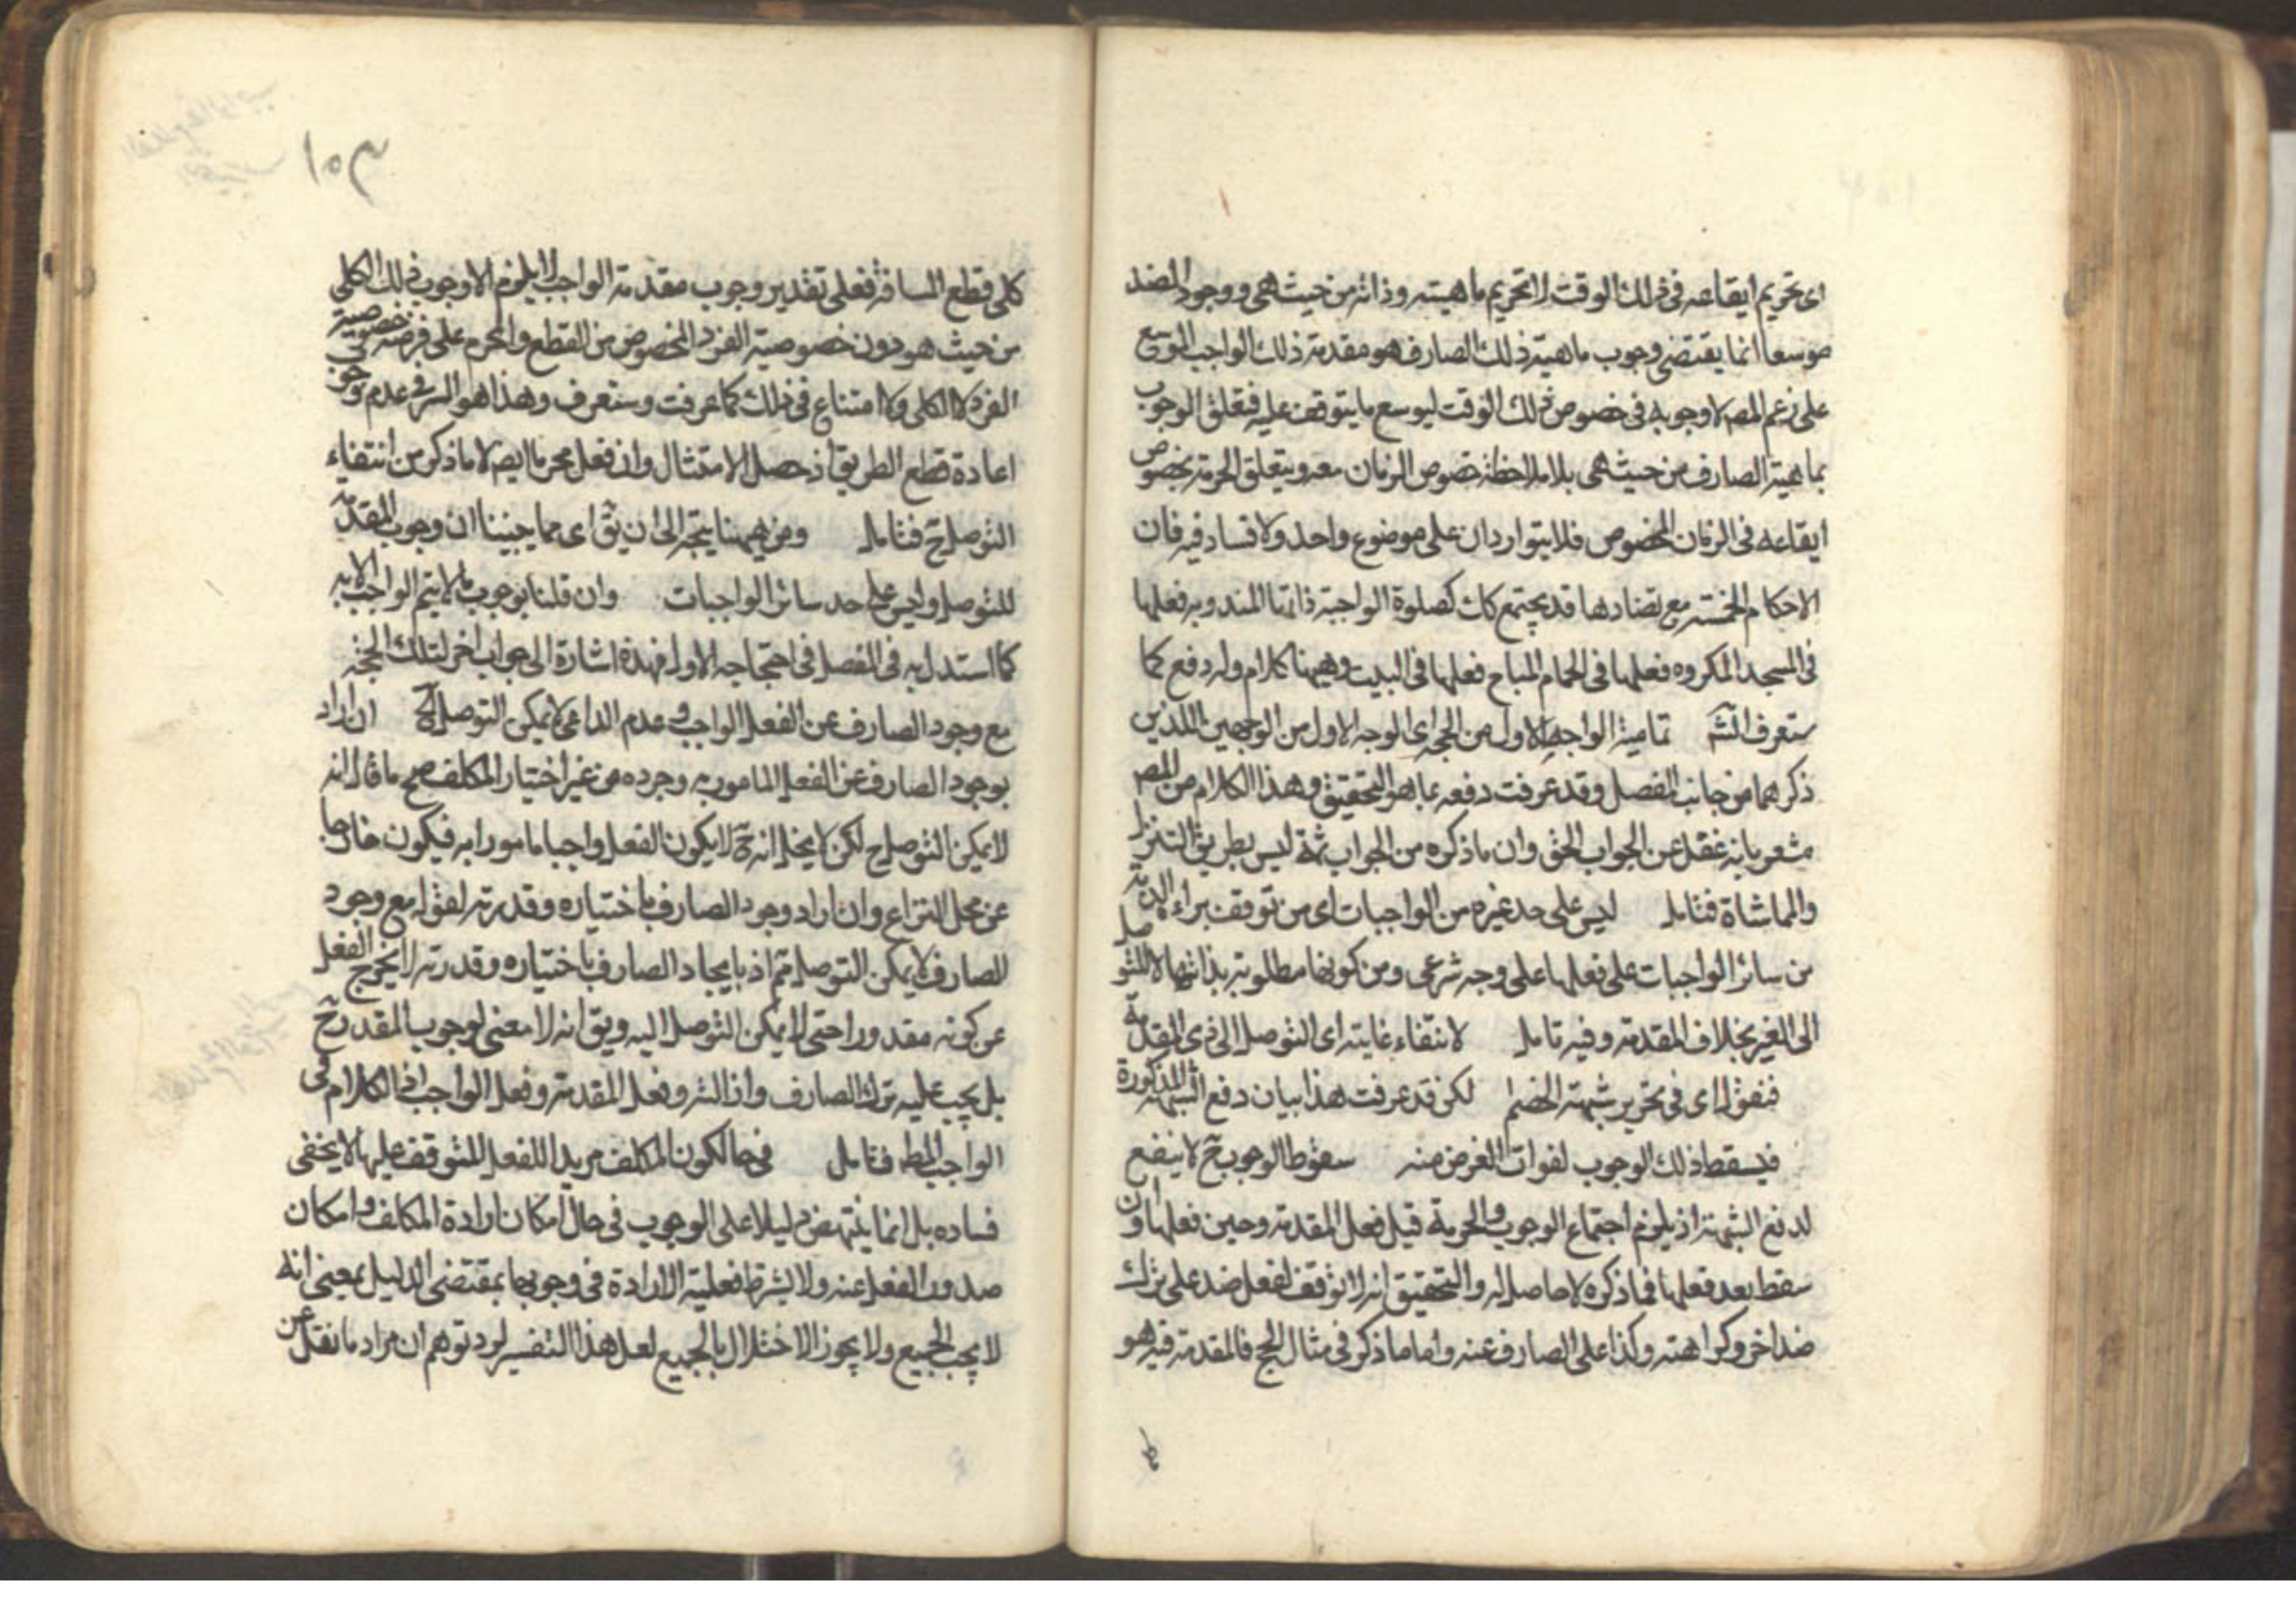 اى تحريم ايقاعه فى ذلك الوقت لا تحريم ماهيته وذاته من حيث هى ووجود الضد
موسعا انما يقتضى وجوب ماهية ذلك الصارف هو مقدمة ذلك الواجب الموسع
على زعم المصـ لا وجوبه فى خصوص ذلك الوقت ليوسع ما يتوقف عليه فتعلق الوجوب
بماهية الصارف من حيث هى بلا ملاحظة خصوص الزمان معه ويتعلق الحرمة بخصوص
ايقاعه فى الزمان المخصوص فلا يتواردان على موضوع واحد ولا فساد فيه فان
الاحكام الخمسة مع تضادها قد يجتمع كك كصلوة الواجبة ذاتها المندوبه فعلها
فى المسجد المكروه فعلها فى الحمام المباح فعلها فى البيت وهيهنا كلام وله دفع كما
ستعرف انشـ تمامية الواجه الاول من الحجة اى الوجه الاول من الوجهين اللذين
ذكرهما من جانب المفصل وقد عرفت دفعه بما هو التحقيق وهذا الكلام من المصـ
مشعر بانه غفل عن الجواب الحق وان ما ذكره من الجواب ثمة ليس بطريق التنزل
والمماشاة فتامل ليس على حد غيره من الواجبات اى من توقف براءة الذمة
من سائر الواجبات على فعلها على وجه شرعى ومن كونها مطلوبة بذاتها لا للتوصل
الى الغير بخلاف المقدمة وفيه تامل لانتفاء غايته اى التوصل الى ذى المقدمة
فنقول اى فى تحرير شبهة الخصم لكن قد عرفت هذا بيان دفع الشبهة المذكورة
فيسقط ذلك الوجوب لفوات الغرض منه سقوط الوجوب ح لا ينفع
لدفع الشبهة اذ يلزم اجتماع الوجوب والحرمة قبل فعل المقدمة وحين فعلها وان
سقط بعد فعلها فما ذكره لا حاصل له والتحقيق انه لا توقف لفعل ضد على ترك
ضد اخر وكراهته وكذا على الصارف عنه واما ما ذكر فى مثال الحج فالمقدمة فيه هو
١٥٣
كلى قطع المسافة فعلى تقدير وجوب مقدمة الواجب لا يلزم الا وجوب ذلك الكلى
من حيث هو دون خصوصية الفرد المخصوص من القطع والمحرم على فرضه خصوصية
الفرد لا الكلى ولا امتناع فى ذلك كما عرفت وستعرف وهذا هو السر فى عدم وجوب
اعادة قطع الطريق اذ حصل الامتثال وان فعل محرما ايضـ لا ما ذكر من انتفاء
التوصل ح فتامل ومن هيهنا يتجه الى ان يق اى مما جيبنا ان وجوب المقدمة
للتوصل وليس على حد سائر الواجبات وان قلنا بوجوب ما لا يتم الواجب الا به
كما استدل به فى المفصل فى احتجاجه الاول فهذه اشارة الى جواب اخر لتلك الحجة
مع وجود الصارف عن الفعل الواجب وعدم الداعى لا يمكن التوصل الخ ان اراد
بوجود الصارف عن الفعل المامور به وجوده من غير اختيار المكلف صح ما قال انه
لا يمكن التوصل ح لكن لا يخل انه ح لا يكون الفعل واجبا مامورا به فيكون خارجا
عن محل النزاع وان اراد وجود الصارف باختياره وقدرته لقوله مع وجود
الصارف لا يمكن التوصل تم اذ بايجاد الصارف باختياره وقدرته لا يخرج الفعل
عن كونه مقدورا حتى لا يمكن التوصل اليه ويق انه لا معنى لوجوب المقدمة ح
بل يجب عليه ترك الصارف وازالته وفعل المقدمة وفعل الواجب اذ الكلام فى
الواجب المطـ فتامل فى حال كون المكلف مريدا للفعل المتوقف عليها لا يخفى
فساده بل انما ينتهض دليلا على الوجوب فى حال امكان ارادة المكلف وامكان
صدور الفعل عنه ولا يشترط فعلية الارادة فى وجوبها بمقتضى الدليل بمعنى انه
لا يجب الجميع ولا يجوز الاختلال بالجميع لعل هذا التفسير لرد توهم ان مراد ما نقل عن